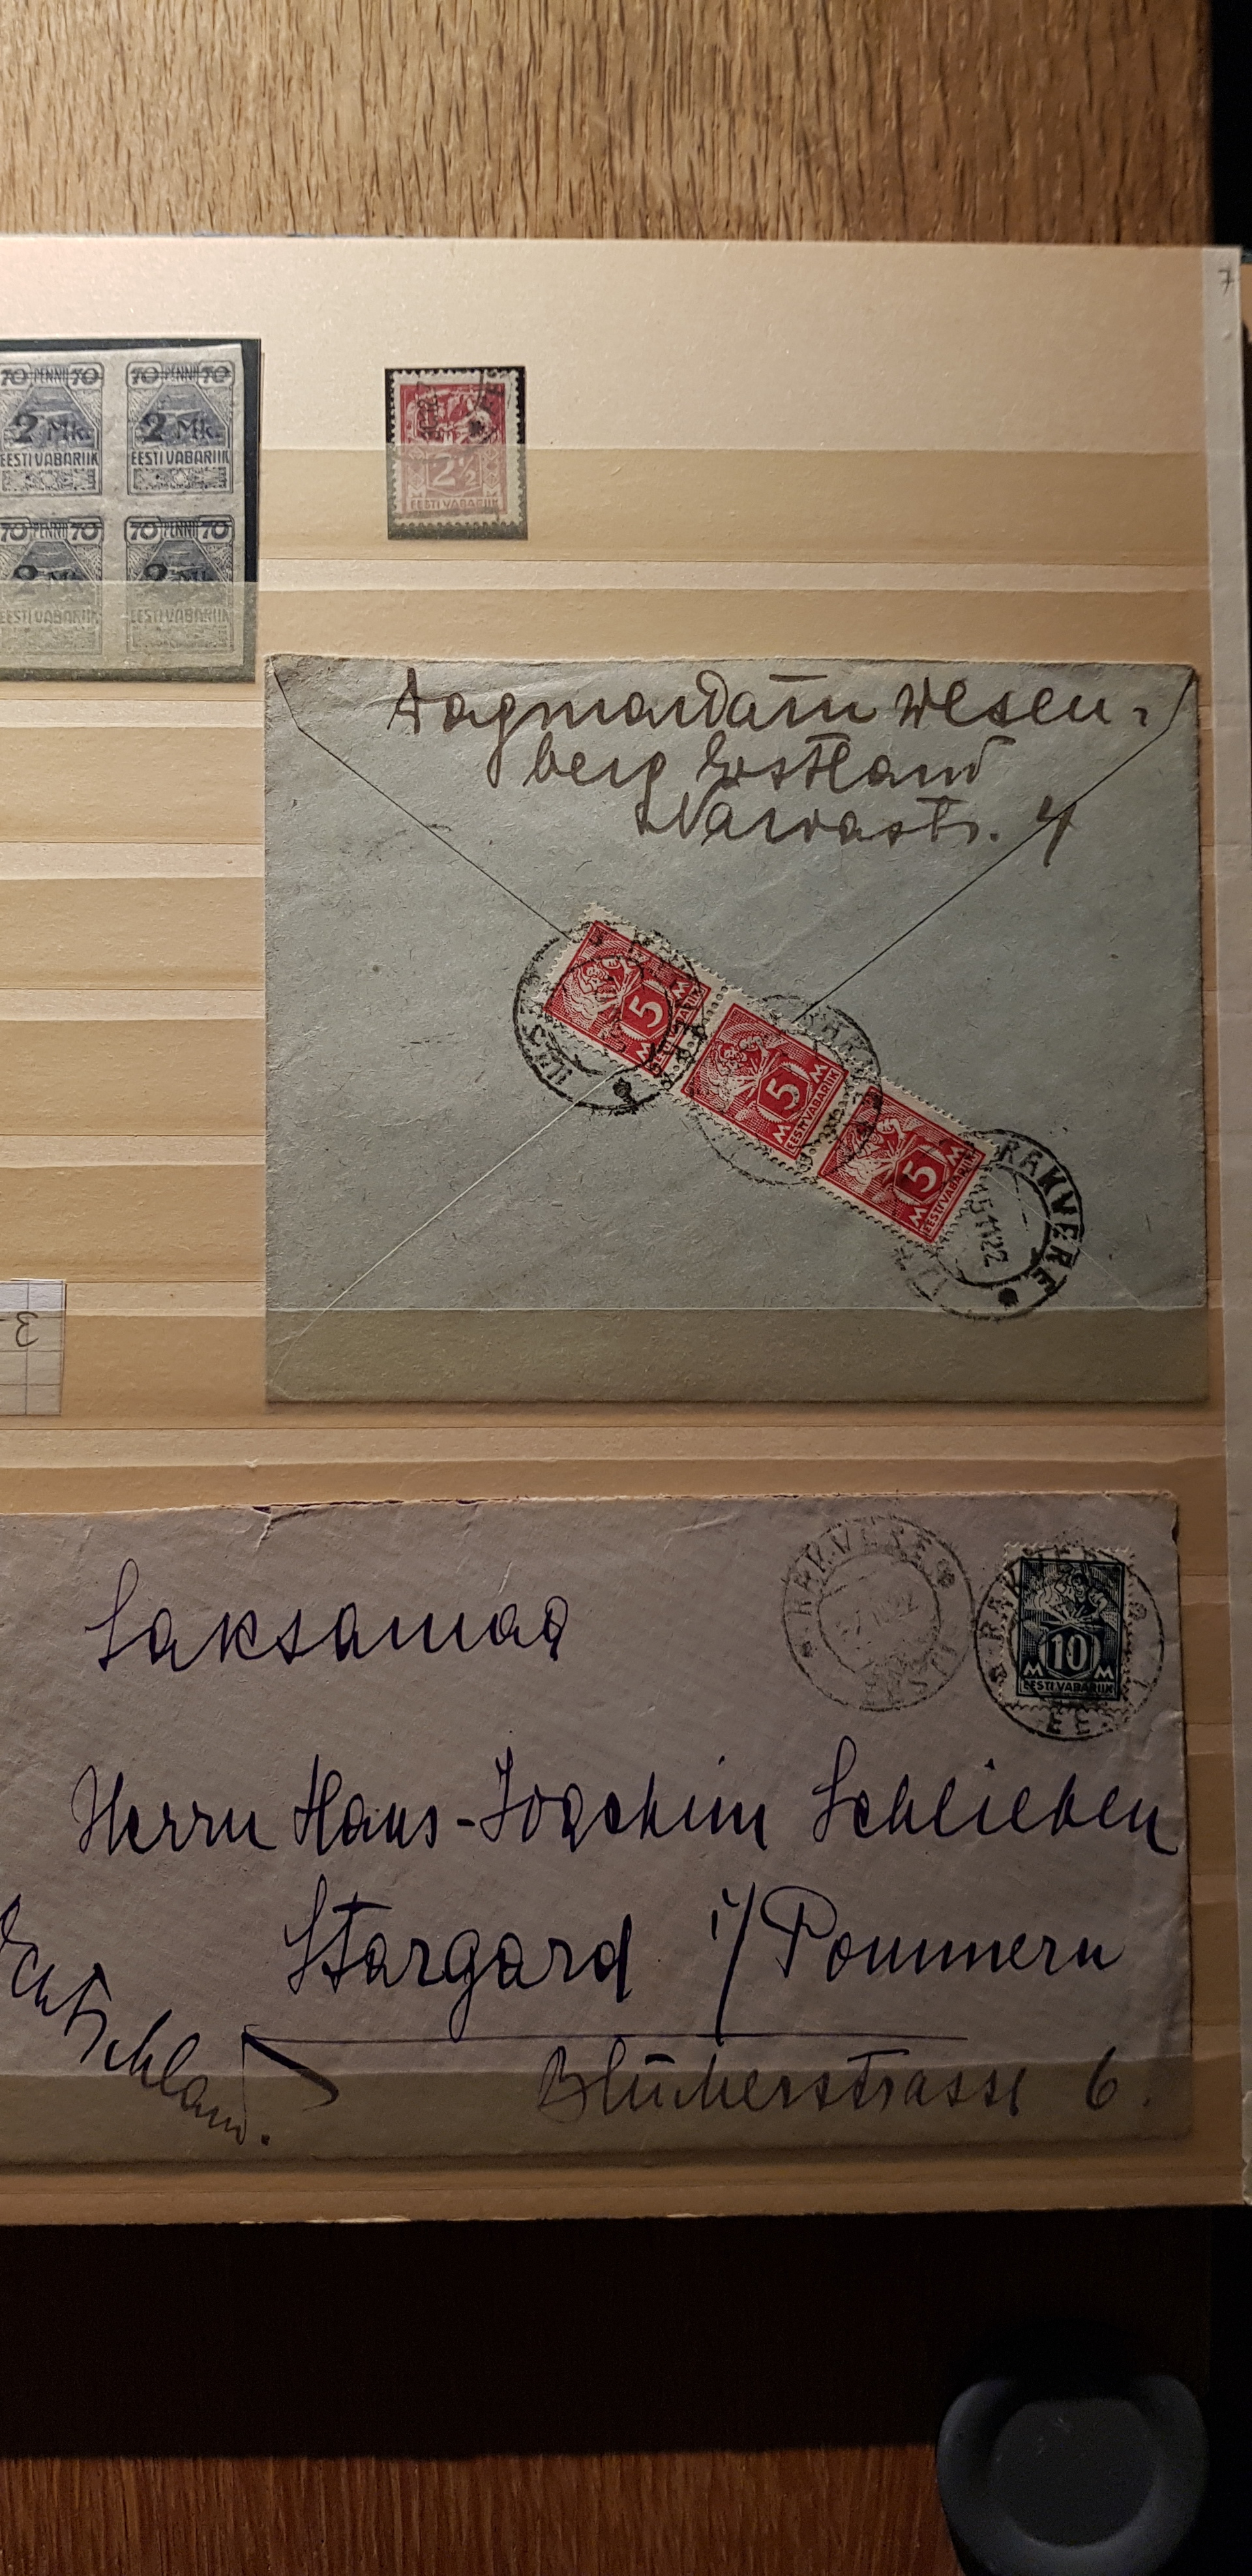 7
70 PENNI 70
2 Mk.
EESTI VABARIIK
70 PENNI 70
2 Mk.
EESTI VABARIIK
70 PENNI 70
2 Mk.
EESTI VABARIIK
70 PENNI 70
2 Mk.
EESTI VABARIIK
2½
EESTI VABARIIK
Wesen-
berg Estland
Narvastr. 4
M 5 M
EESTI VABARIIK
M 5 M
EESTI VABARIIK
M 5 M
EESTI VABARIIK
RAKVERE
5 11 22
3
Saksamaa
RAKVERE
EESTI
RAKVERE
EESTI
M 10 M
EESTI VABARIIK
Herrn Hans-Joachim Schlieben
Stargard i/Pommern
Blücherstrasse 6.